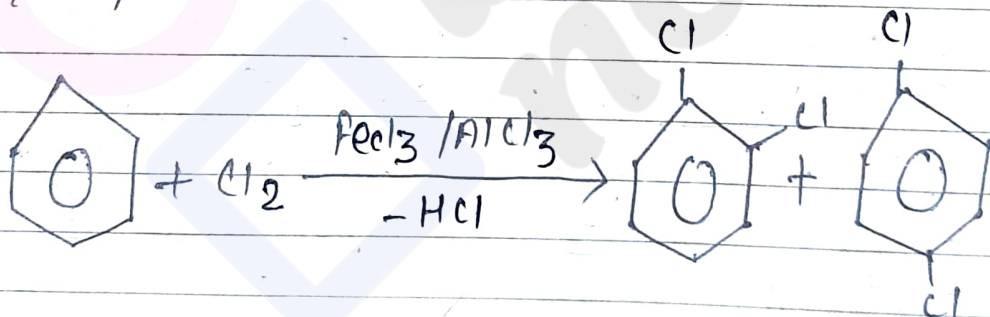 Cl Cl
Cl
FeCl3 /AlCl3
+ Cl2 +
-HCl
Cl